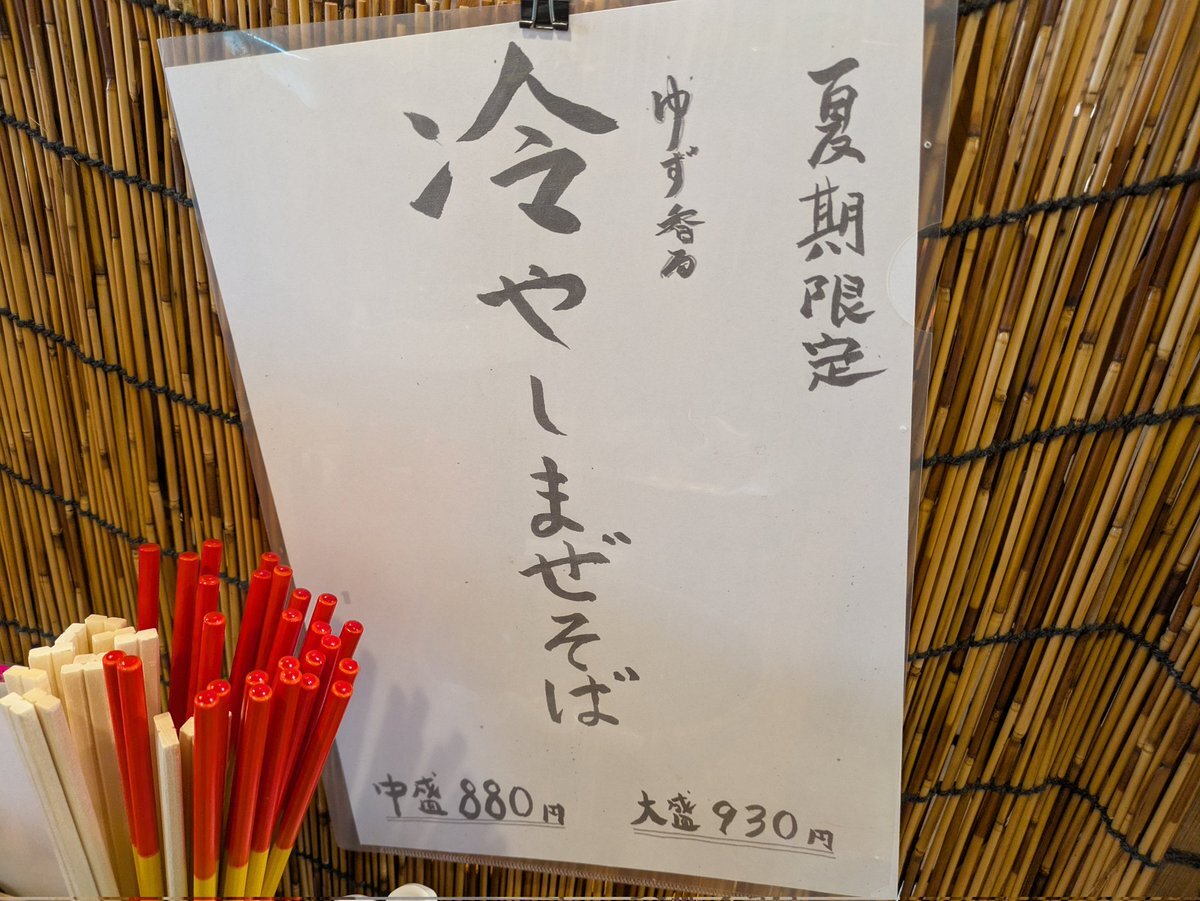 夏期限定
ゆず香る
冷やしまぜそば
中盛880円
大盛930円